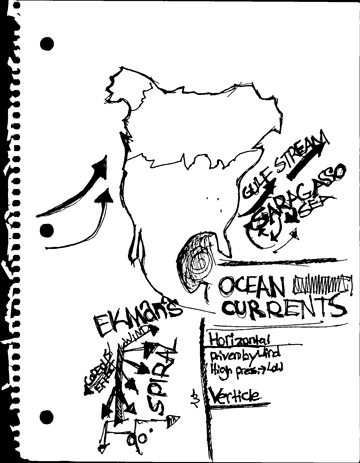 GULF STREAM
SARAGASO
SEA
OCEAN
CURRENTS
EKMAN'S
WIND
SPIRAL
EFFECT
90°
Horizontal
Driven by Wind
High press → Low
Verticle